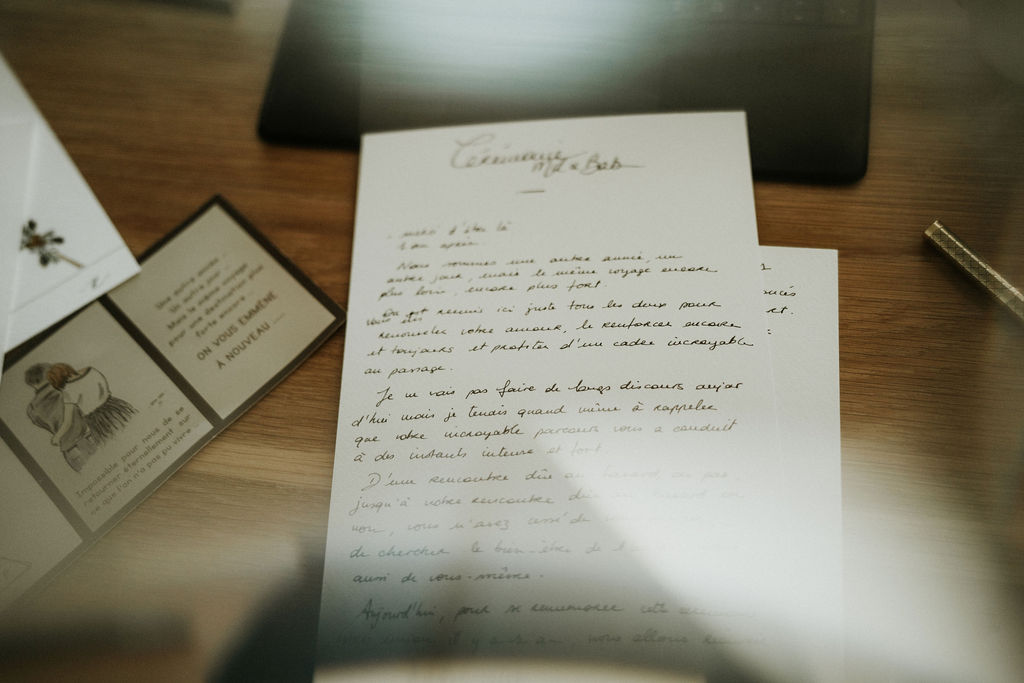 Cérémonie
Une autre année...
Un autre jour...
Mais le même voyage
pour une destination +
forte encore...
ON VOUS EMMÈNE
À NOUVEAU ....
Impossible pour nous de se
retourner éternellement sur
ce que l'on n'a pas pu vivre...
- merci d'être là
1 an après.
Nous sommes une autre année, un
autre jour, mais le même voyage encore
plus loin, encore plus fort.
On est réunis ici juste tous les deux pour
Vous êtes
renouveler votre amour, le renforcer encore
et toujours et profiter d'une cadre incroyable
au passage.
Je ne vais pas faire de longs discours aujour
d'hui mais je tenais quand même à rappeler
que votre incroyable parcours vous a conduit
à des instants intense et fort
D'une rencontre dûe au hasard ou pas
jusqu'à votre rencontre dûe au hasard ou
non, vous n'avez cessé de
de chercher le bien-être de l'
aussi de vous-même.
Aujourd'hui, pour se rememorer cette
il y a un an, nous allons